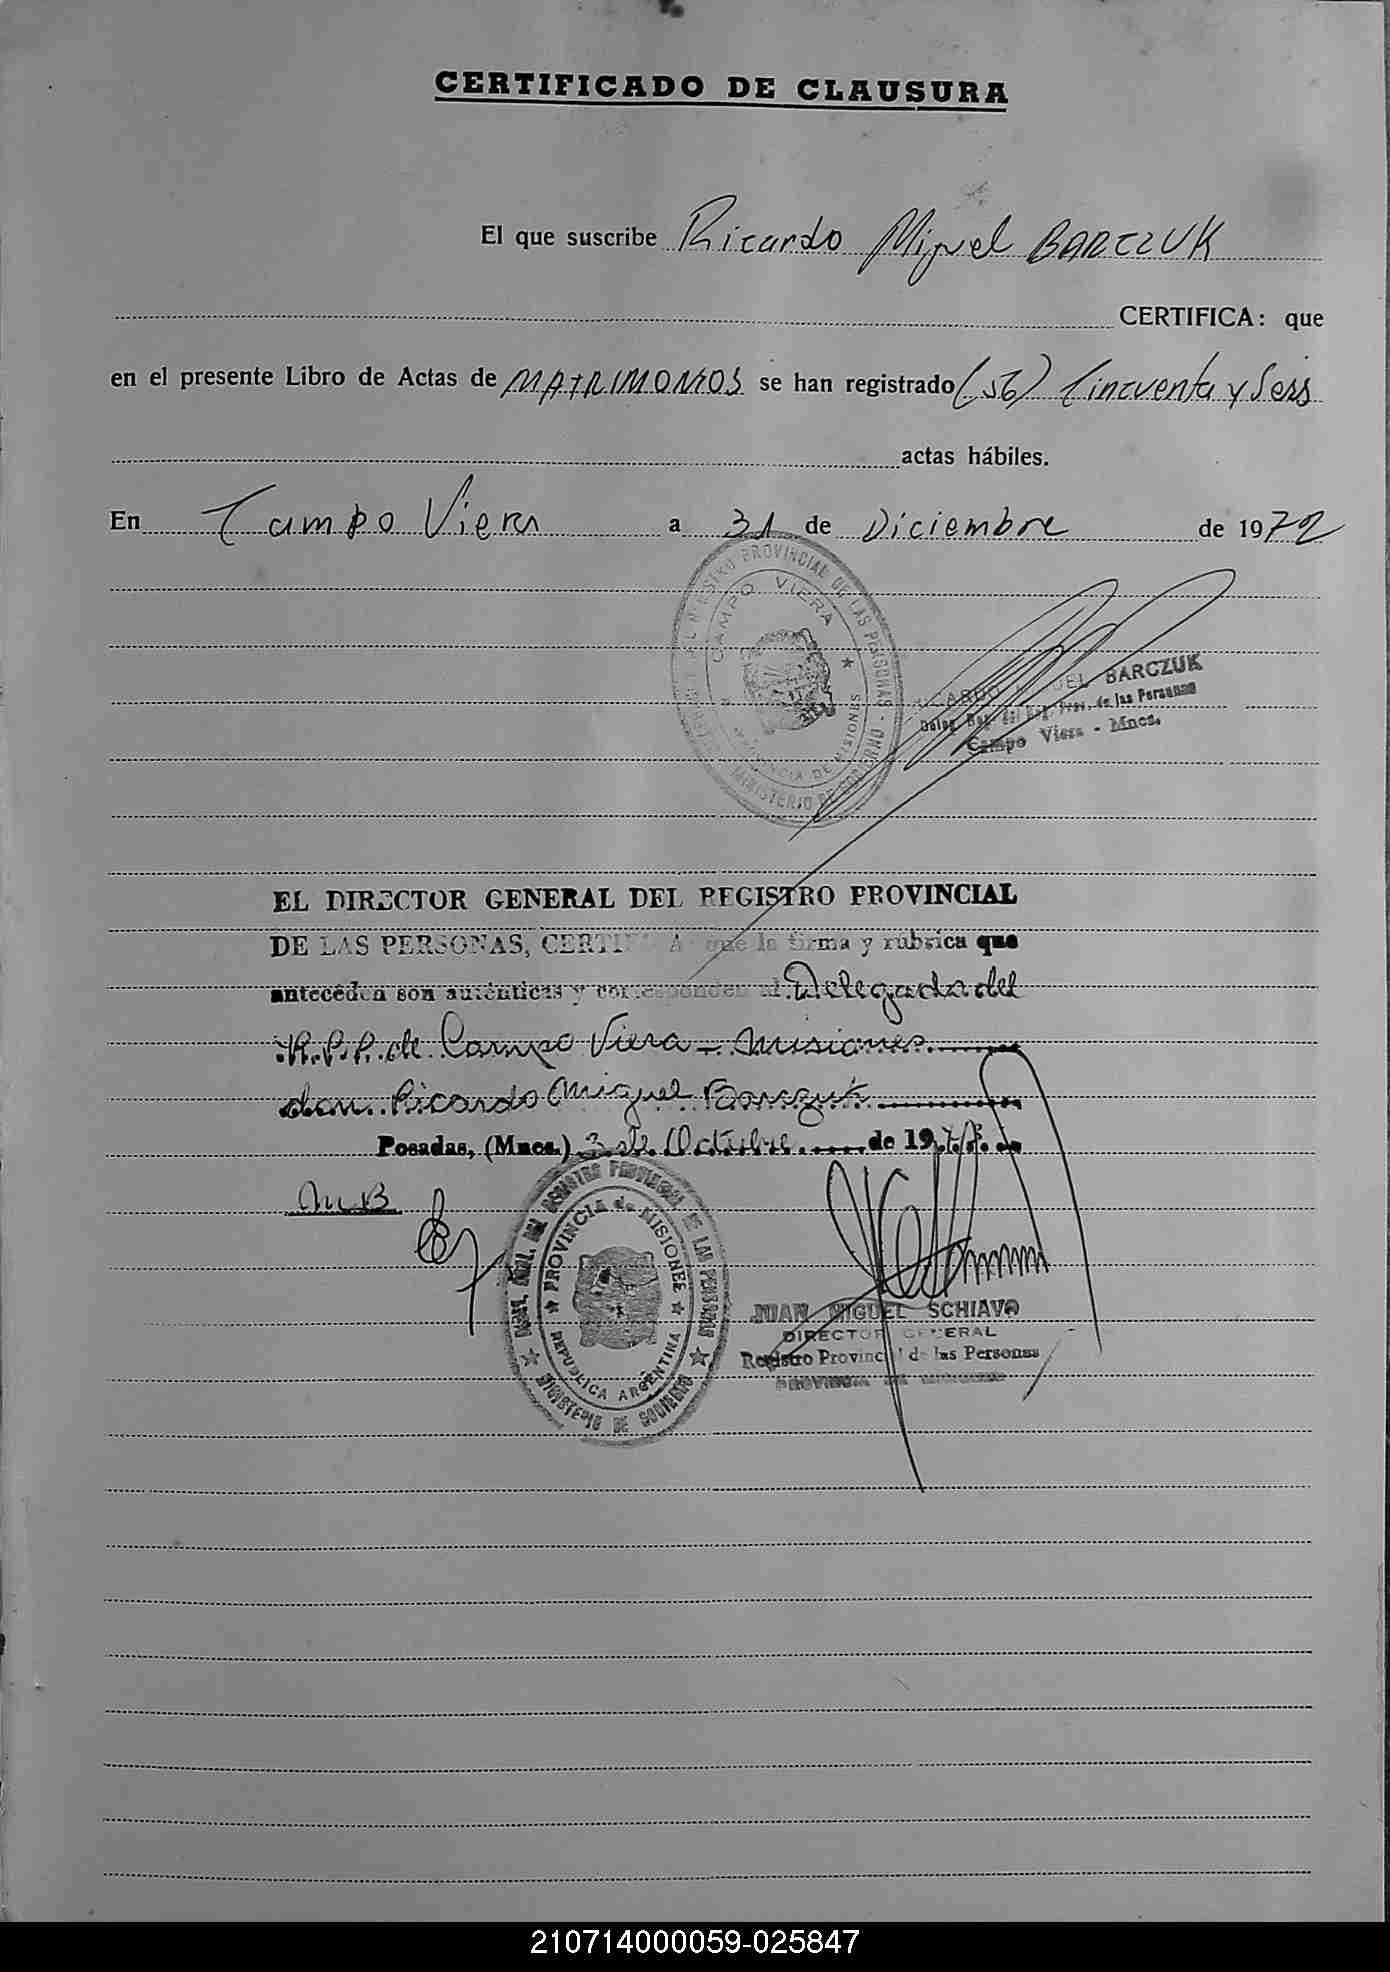 CERTIFICADO DE CLAUSURA
El que suscribe Ricardo Miguel BARCZUK
CERTIFICA: que
en el presente Libro de Actas de MATRIMONIOS se han registrado (56) Cincuenta y Seis
actas hábiles.
En Campo Viera a 31 de Diciembre de 1972
PROVINCIAL DE LAS PERSONAS - MINISTERIO DE GOBIERNO
CAMPO VIERA
PROVINCIA DE MISIONES
RICARDO MIGUEL BARCZUK
Deleg. Reg. del Reg. Prov. de las Personas
Campo Viera - Mnes.
EL DIRECTOR GENERAL DEL REGISTRO PROVINCIAL
DE LAS PERSONAS, CERTIFICA que la firma y rúbrica que
anteceden son auténticas y corresponden al Delegado del
R.P.P. de Campo Viera - Misiones
don Ricardo Miguel Barczuk
Posadas, (Mnes.) 3 de Octubre de 197
DEL REGISTRO PROVINCIAL DE LAS PERSONAS
PROVINCIA de MISIONES
REPUBLICA ARGENTINA
MINISTERIO DE GOBIERNO
JUAN MIGUEL SCHIAVO
DIRECTOR GENERAL
Registro Provincial de las Personas
PROVINCIA DE MISIONES
210714000059-025847